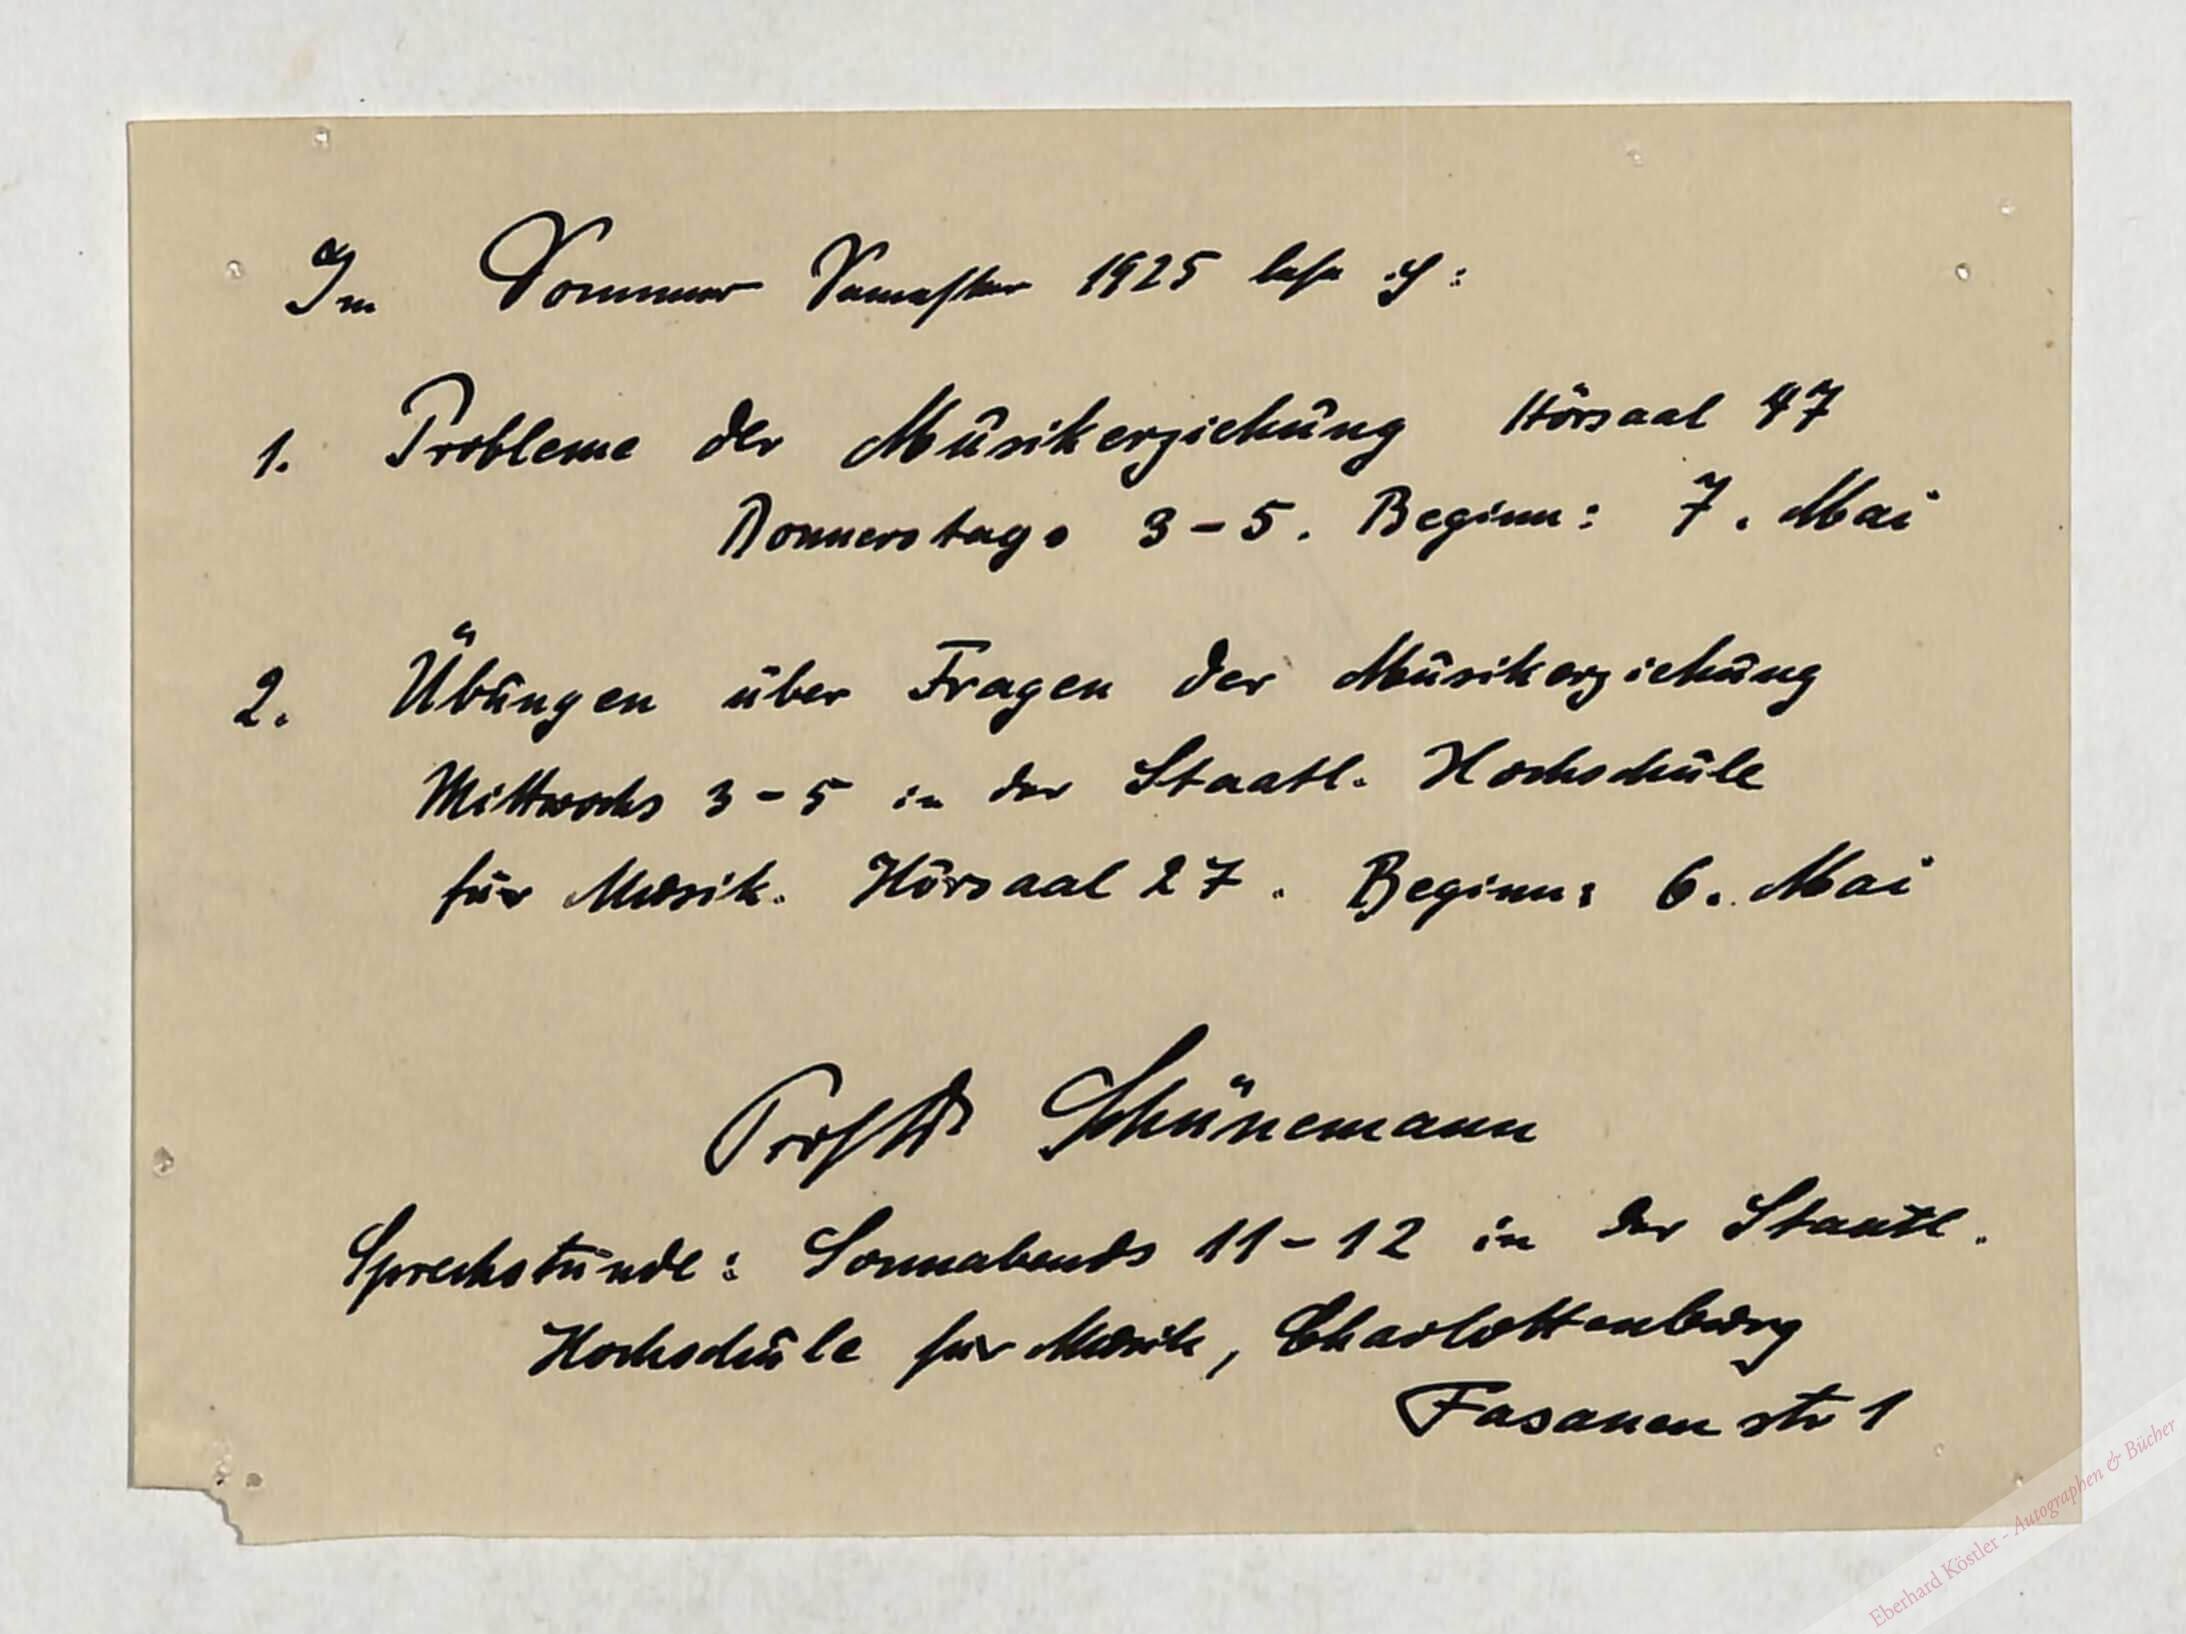 Im Sommer Semester 1925 lese ich:
1. Probleme der Musikerziehung Hörsaal 47
Donnerstags 3-5. Beginn: 7. Mai
2. Übungen über Fragen der Musikerziehung
Mittwochs 3-5 in der Staatl. Hochschule
für Musik. Hörsaal 27. Beginn: 6. Mai
Prof Dr Schünemann
Sprechstunde: Sonnabends 11-12 in der Staatl.
Hochschule für Musik, Charlottenburg
Fasanenstr 1
Eberhard Köstler - Autographen & Bücher